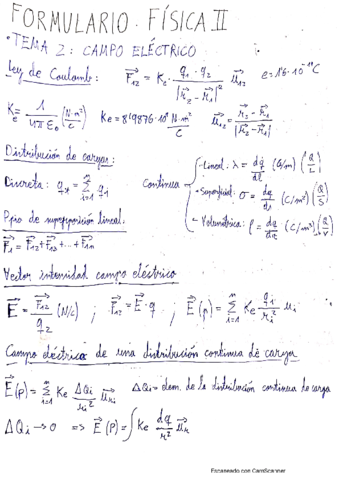 FORMULARIO · FÍSICA II
• TEMA 2: CAMPO ELÉCTRICO
Ley de Coulomb: F⃗₁₂ = Ke · q₁ · q₂ / |r⃗₂ - r⃗₁|² u⃗₁₂ e = 1'6 · 10⁻¹⁹ C
Ke = 1 / 4π ε₀ (N·m² / C) Ke = 8'9876 · 10⁹ N·m² / C u⃗₁₂ = r⃗₂ - r⃗₁ / |r⃗₂ - r⃗₁|
Distribución de cargas:
Discreta: q = Σ qi
Continua
- Lineal: λ = dq / dl (C/m) (Q / L)
- Superficial: σ = dq / ds (C/m²) (Q / S)
- Volumétrica: ρ = dq / dv (C/m³) (Q / V)
Ppio de superposición lineal.
F⃗₁ = F⃗₁₂ + F⃗₁₃ + ... + F⃗₁n
Vector intensidad campo eléctrico
E⃗ = F⃗₁₂ / q₂ (N/C) ; F⃗₁₂ = E⃗ · q ; E⃗(p) = Σ i=1 n Ke qi / ri² u⃗i
Campo eléctrico de una distribución continua de carga
E⃗(P) = Σ i=1 n Ke ΔQi / ri² u⃗ri ΔQi = elem. de la distribución continua de carga
ΔQi → 0 => E⃗(P) = ∫ Ke dq / r² u⃗r
Escaneado con CamScanner